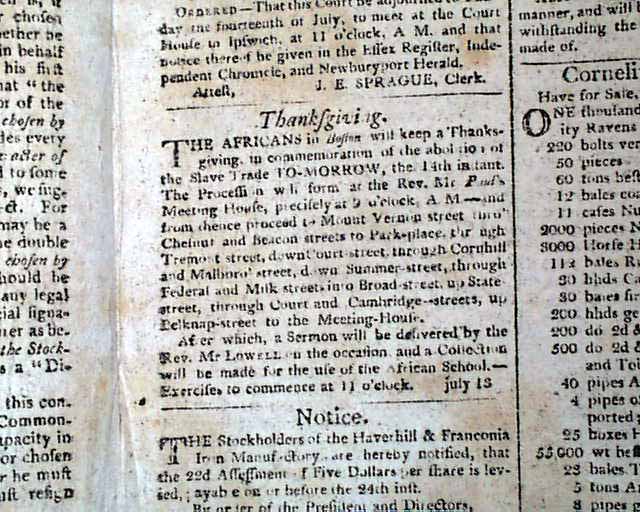 ORDERED—That this Court be adjourned to
day the fourteenth of July, to meet at the Court
House to Ipswich, at 11 o'clock, A M. and that
notice thereof be given in the Essex Register, Inde-
pendent Chronicle, and Newburyport Herald.
Attest, J. E. SPRAGUE, Clerk.
Thanksgiving.
THE AFRICANS in Boston will keep a Thanks-
giving, in commemoration of the abolition of
the Slave Trade TO-MORROW, the 14th instant.
The Procession will form at the Rev. Mr Paul's
Meeting House, precisely at 9 o'clock, A M.—and
from thence proceed to Mount Vernon street thro'
Chesnut and Beacon streets to Park-place, through
Tremont street, down Court street, through Cornhill
and Malboro' street, down Summer-street, through
Federal and Milk streets into Broad-street, up State
street, through Court and Cambridge-streets, up
Belknap-street to the Meeting-House.
After which, a Sermon will be delivered by the
Rev. Mr LOWELL on the occasion and a Collection
will be made for the use of the African School.—
Exercises to commence at 11 o'clock. july 13
Notice.
THE Stockholders of the Haverhill & Franconia
Iron Manufactory are hereby notified, that
the 22d Assessment of Five Dollars per share is lev-
ied, payable on or before the 24th inst.
By order of the President and Directors,
whether be
in behalf
his first
that "the
or of the
chosen by
des every
acter of
d to some
s, we sug-
ct. For
may be a
he double
chosen by
should be
any legal
cial signa-
ner as be-
the Stock-
s a "Di-
this con.
Common-
apacity in
or chosen
er he must
ust resign
manner, and will
withstanding the
made of.
Corneli
Have for Sale,
ONE thousand
ity Ravens
220 bolts ver
50 pieces
60 tons best
12 bales co
11 cases N
2000 pieces N
3000 Horse H
112 bales R
30 hhds C
30 bales fi
200 hhds ge
200 do 2d &
500 do 2d &
and To
40 pipes A
4 pipes o
ported
25 boxes H
55,000 wt he
23 bales T
5 tons A
8 pipes